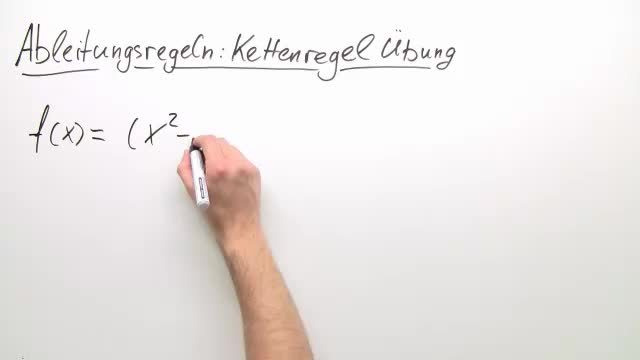 Ableitungsregeln: Kettenregel Übung
f(x) = (x² -